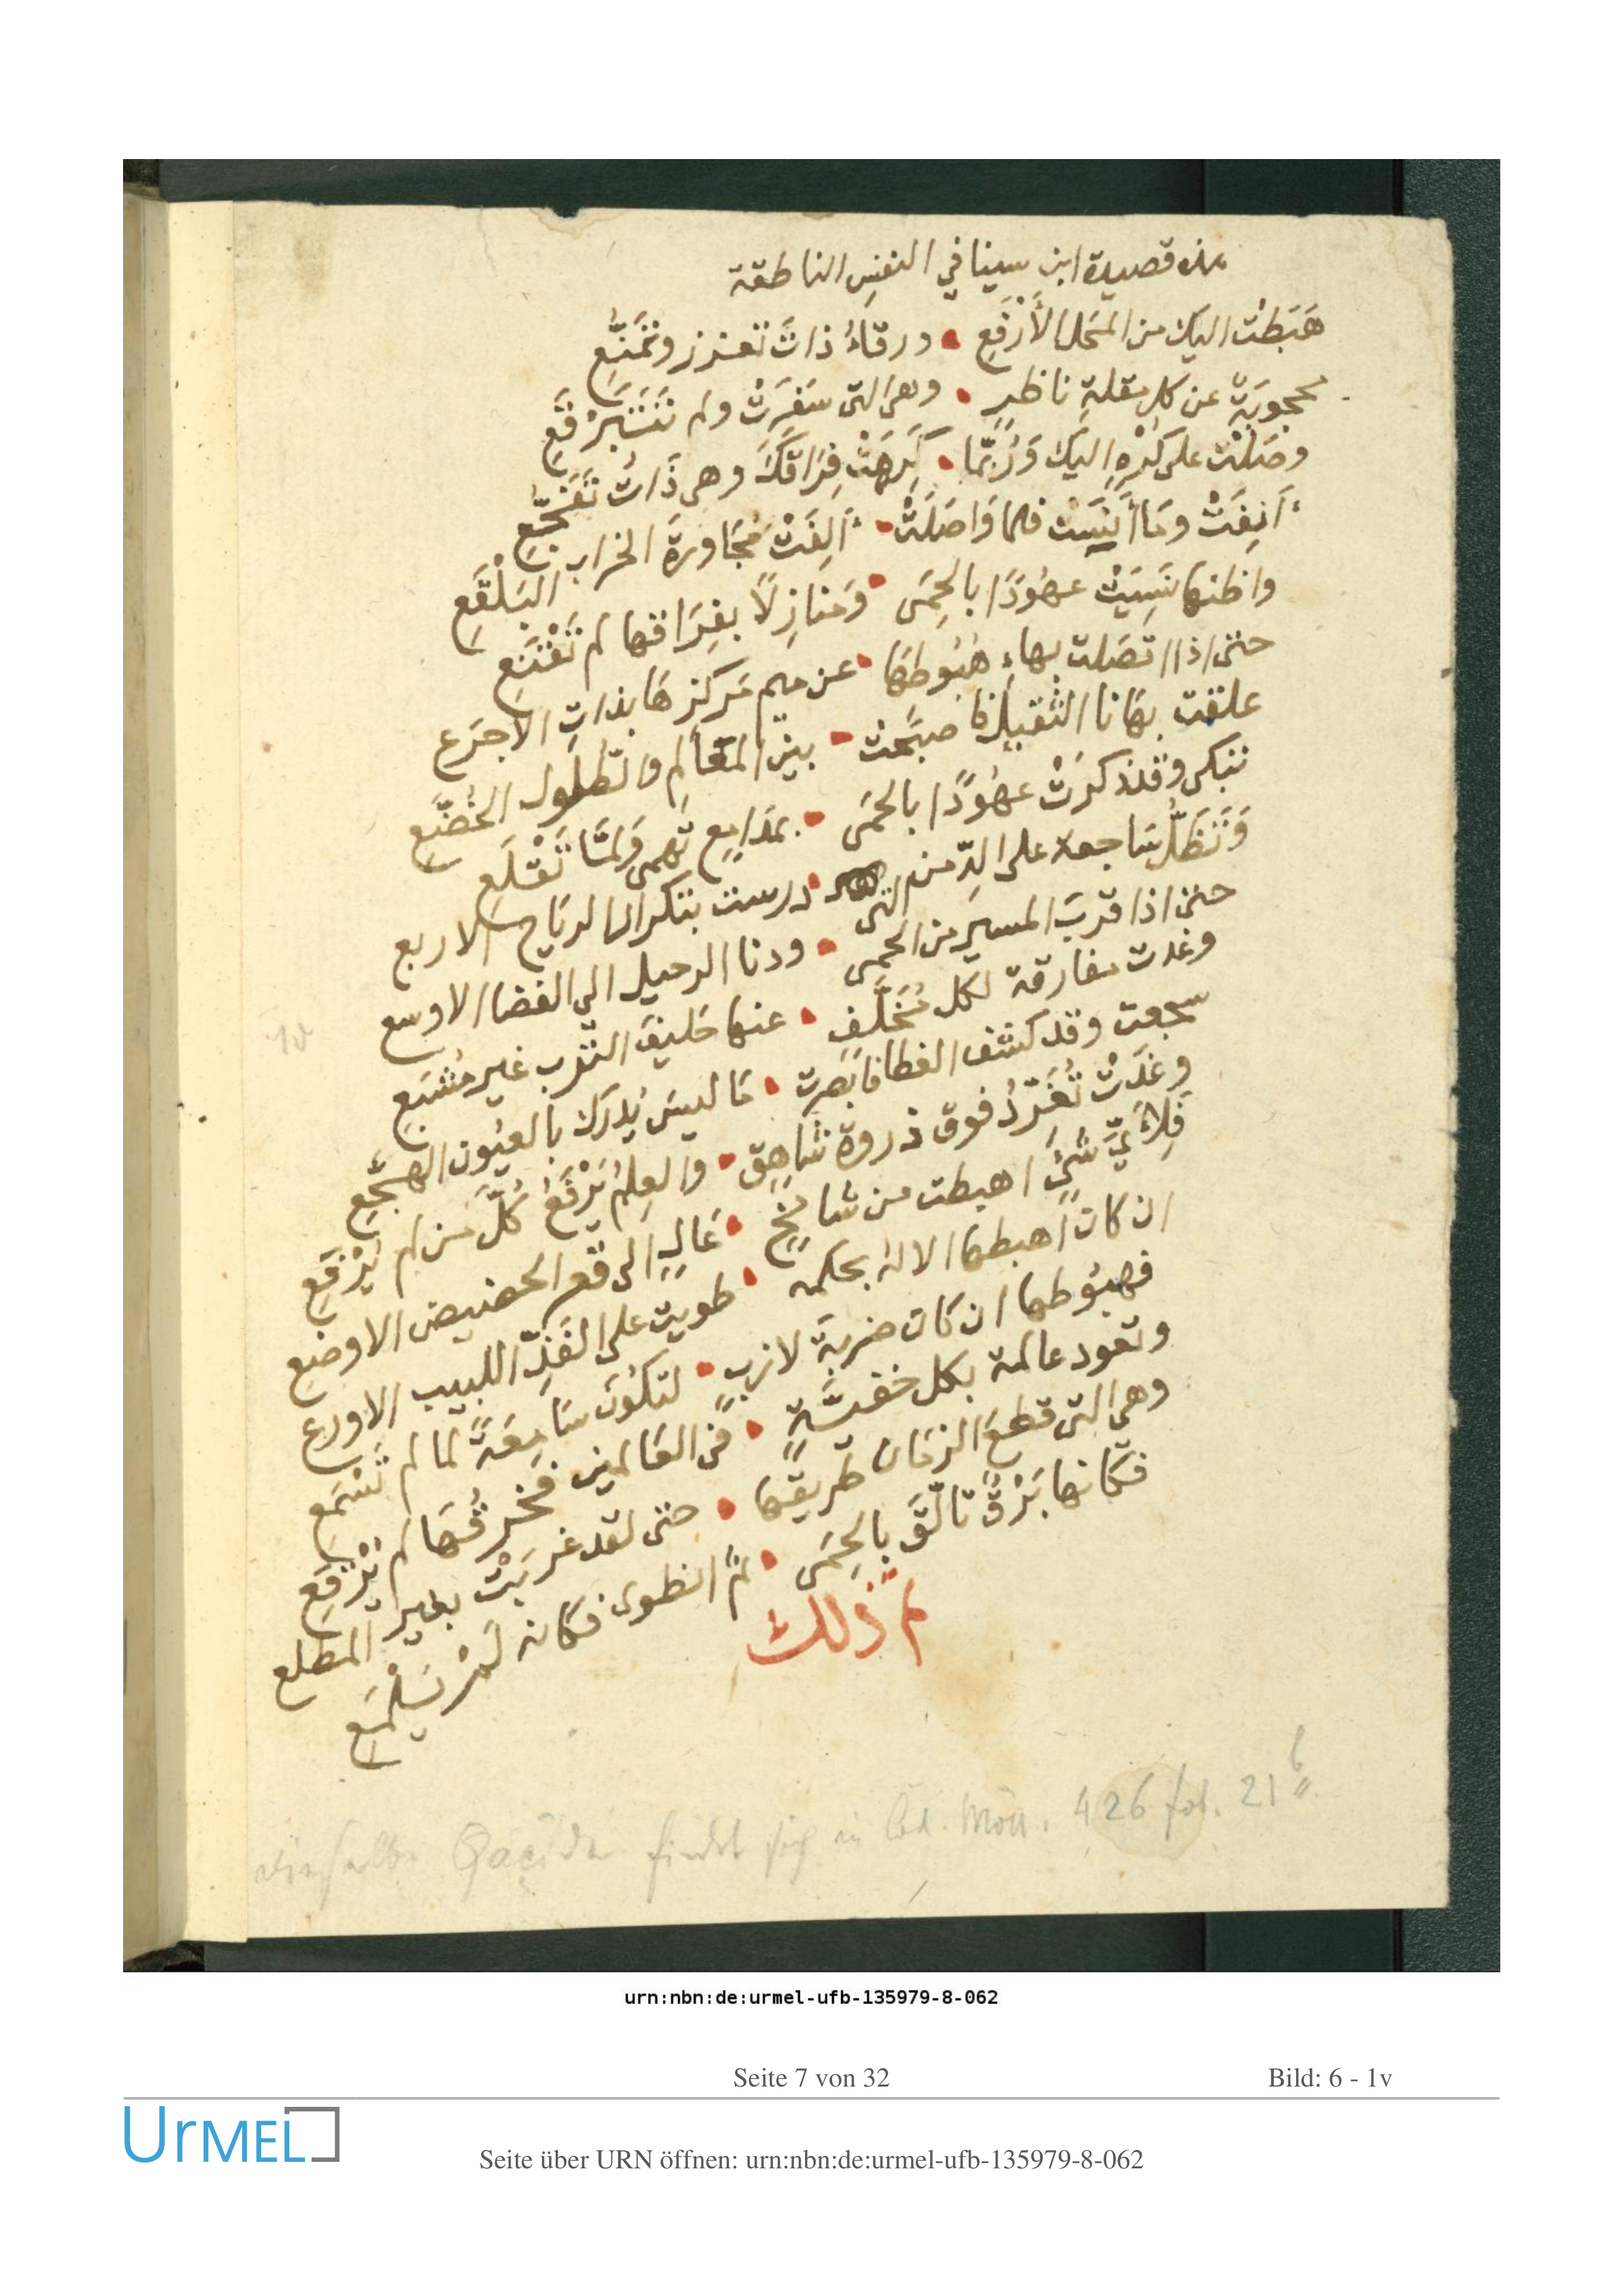 هذه قصيدة ابن سينا في النفس الناطقة
هَبَطَتْ اليك من المَحَل الأَرْفَعِ • ورقَاءُ ذاتَ تعزز وتَمَنُّعِ
محجوبَةٌ عن كل مقلةِ ناظرٍ • وهي التى سَفَرَتْ ولم تَتَبَرْقَعِ
وصَلَتْ على كُرْهٍ اليك وَرُبَّمَا • كَرِهَتْ فِرَاقَكَ وهي ذَاتُ تَفَجُّعِ
أَنِفَتْ ومَا أَنِسَتْ فلما وَاصَلَتْ • أَلِفَتْ مُجَاورةَ الخراب البَلْقَعِ
واظنها نَسِيَتْ عهُودًا بالحِمَى • ومنازِلًا بفِرَاقها لم تَقْنَعِ
حتى اذا اتصَلت بهاءِ هُبُوطهَا • عن ميم مَركزهَا بذاتِ الاجرَع
علقت بهَا ثا الثقيل فاصبَحت • بين المعَالمِ والطلُول الخُضَّعِ
تبكى وقد ذكرَتْ عهُودًا بالحمَى • بمَدَامِعٍ تَهمى وَلمَّا تَقْلَعِ
وَتَظَلُّ سَاجعة على الدِّمن التى • درست بتكرار الرياح الاربع
حتى اذا قربَ المسير من الحمى • ودنا الرحيل الى الفضا الاوسع
وغدت مفارقة لكل مُخَلَّفٍ • عنها حَليفَ الترب غير مُشَيَعِ
سجعت وقد كشف الغطا فابصرت • مَا ليسَ يُدرَك بالعيُون الهجَّعِ
وغَدَتْ تُغَرِّدُ فوق ذروة شاهِقٍ • والعِلمُ يَرْفَعُ كلَّ من لم يُرْفَعِ
فَلِأَيِّ شَيْءٍ اهبطت من شامخٍ • عَالٍ الى قعر الحضيض الاوضعِ
ان كان اهبطها الاله بحكمه • طويت على الفَذِّ اللبيب الاورع
فهبُوطها ان كان ضربةَ لازبٍ • لتكُونَ سَامِعَةً لما لم تَسْمَعِ
وتعود عالمة بكل خفيَّةٍ • في العَالمين فخرقُهَا لم يُرْقَعِ
وهي التى قطعَ الزمَان طريقها • حتى لقد غربَتْ بغير المطلع
فكانها بَرْقٌ تالّقَ بالحِمَى • ثمّ انطوى فكانه لَمْ يَلْمَعِ
تم ذلك
dieselbe Qaçîde findet sich in Cod. Mön. 426 fol. 21 b
urn:nbn:de:urmel-ufb-135979-8-062
Seite 7 von 32 Bild: 6 - 1v
UrMEL
Seite über URN öffnen: urn:nbn:de:urmel-ufb-135979-8-062